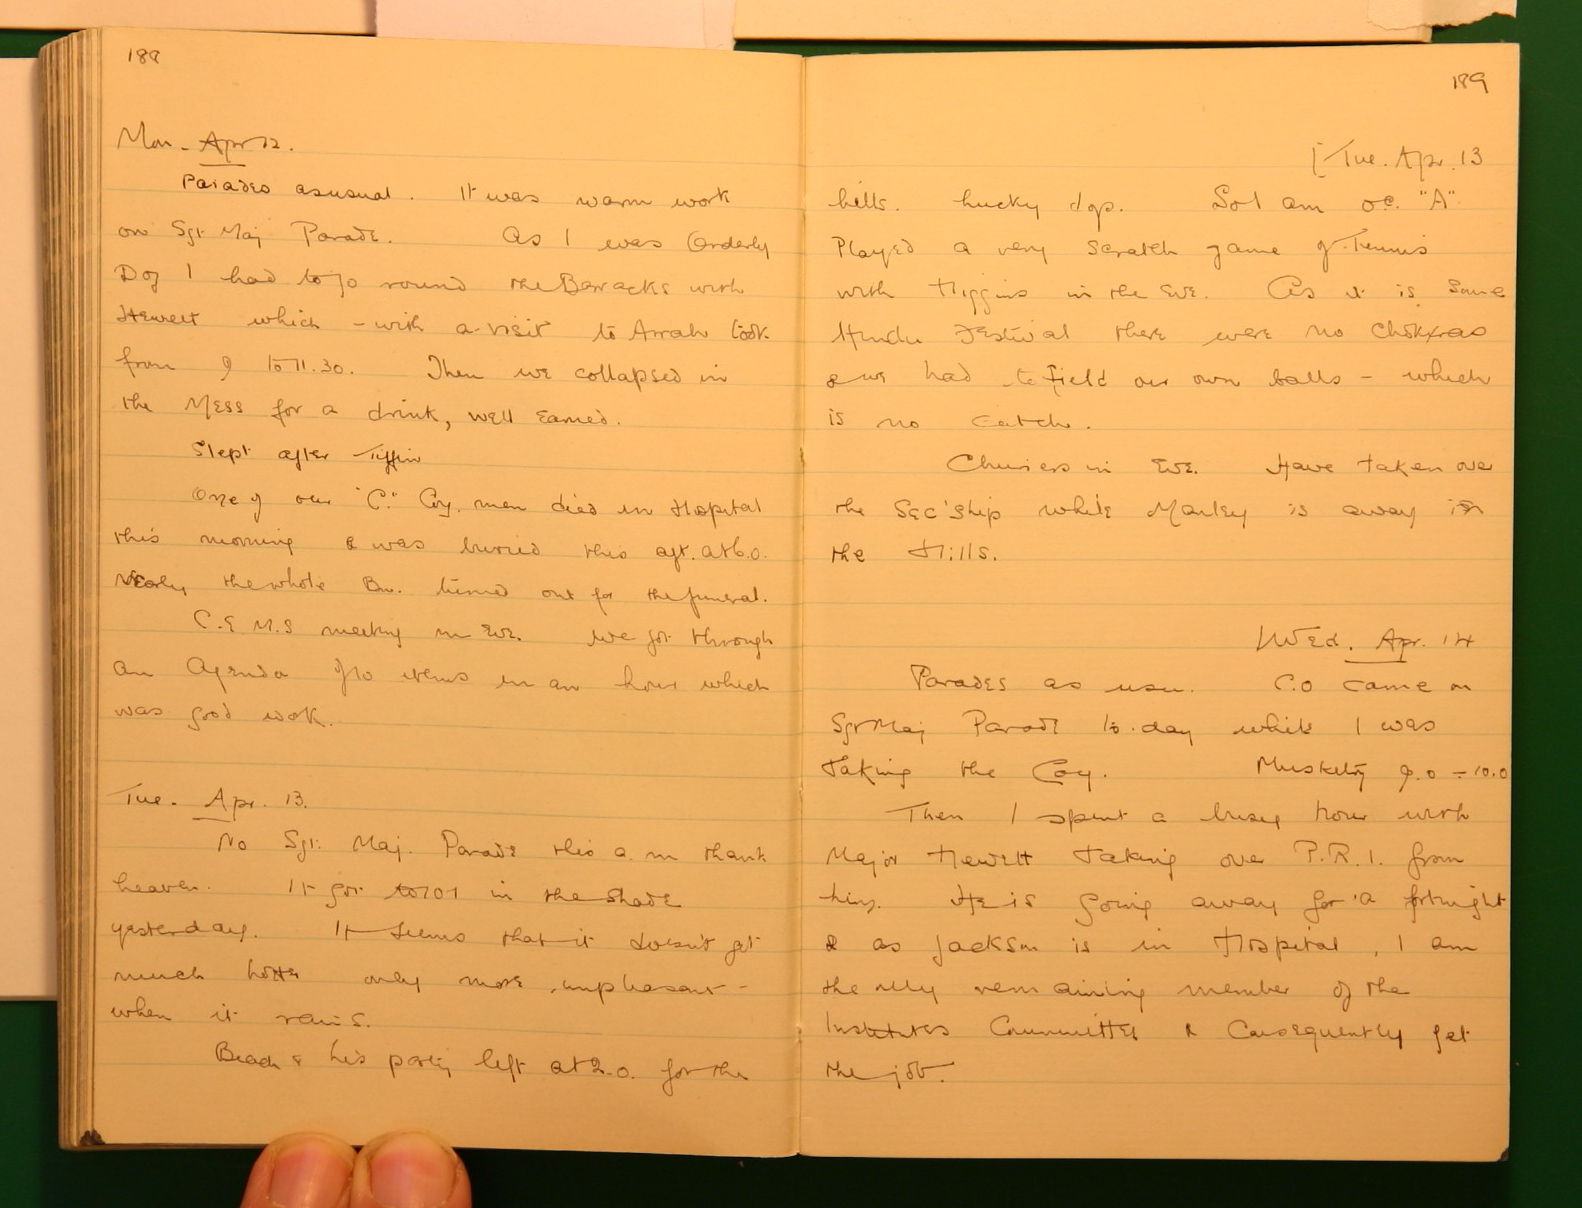 188
Mon. Apr 12.
Parades as usual. It was warm work
on Sgt Maj Parade. As I was Orderly
Dog I had to go round the Barracks with
Hewett which - with a visit to Arrah took
from 9 to 11.30. Then we collapsed in
the Mess for a drink, well earned.
Slept after Tiffin
One of our "C" Coy. men died in Hospital
this morning & was buried this aft. at 6.0.
Nearly the whole Bn. turned out for the funeral.
C.E.M.S meeting in Eve. We got through
an Agenda of 10 items in an hour which
was good work.
Tue. Apr. 13.
No Sgt. Maj. Parade this a.m thank
heaven. It got to 101 in the shade
yesterday. It seems that it doesn't get
much hotter only more unpleasant -
when it rains.
Beach & his party left at 2.0. for the
189
[Tue. Apr. 13
hills. Lucky dogs. So I am o.c. "A"
Played a very scratch game of Tennis
with Higgins in the Eve. As it is some
Hindu Festival there were no Chokras
& we had to field our own balls - which
is no catch.
in Eve. Have taken over
the Sec'ship while Manley is away in
the Hills.
Wed. Apr. 14
Parades as usu. C.O came on
Sgt Maj Parade to-day while I was
taking the Coy. Musketry 9.0 - 10.0
Then I spent a busy hour with
Major Hewett taking over P.R.I. from
him. He is going away for a fortnight
& as Jackson is in Hospital, I am
the only remaining member of the
Institutes Committee & consequently get
the job.